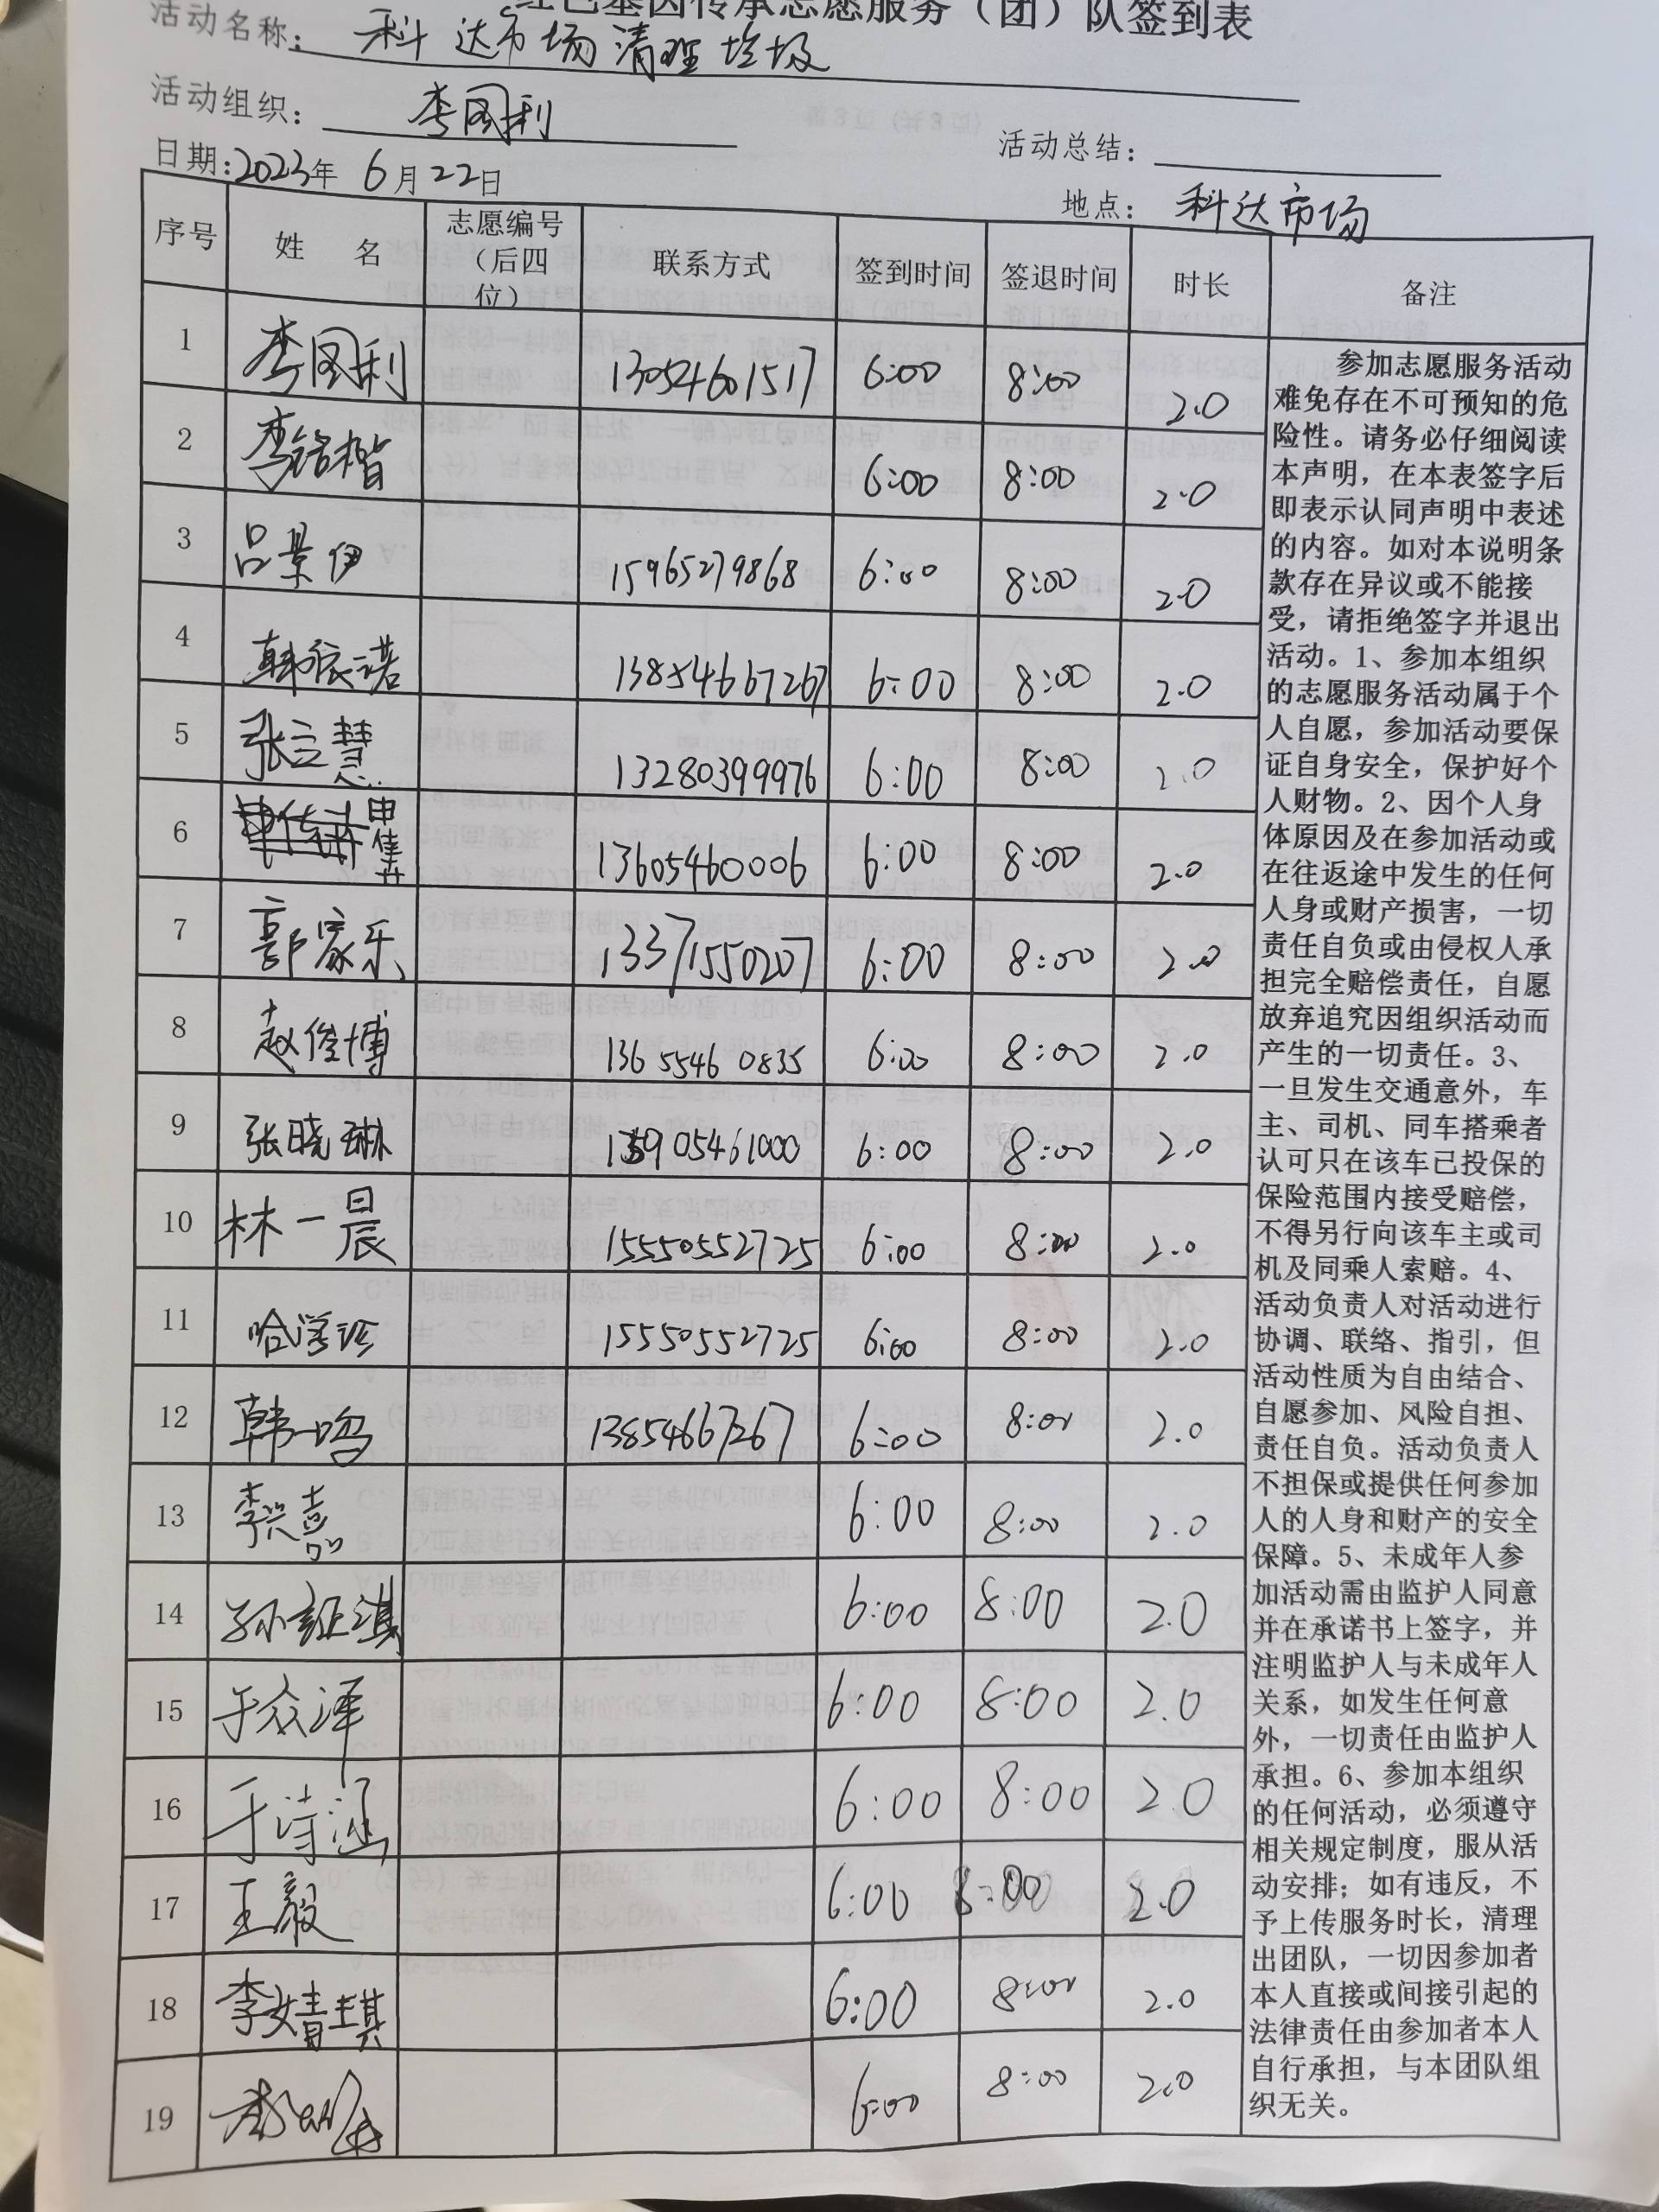 红色基因传承志愿服务（团）队签到表
活动名称：科达市场清理垃圾
活动组织：李图利
活动总结：
日期：2023年 6月22日
地点：科达市场
序号 姓 名 志愿编号（后四位） 联系方式 签到时间 签退时间 时长 备注
1 李图利 13054601517 6:00 8:00 2.0
2 李铭楷 6:00 8:00 2.0
3 吕景伊 15965279868 6:00 8:00 2.0
4 韩依诺 13854667267 6:00 8:00 2.0
5 张立慧 13280399976 6:00 8:00 2.0
6 申佳卉 13605460006 6:00 8:00 2.0
7 郭家乐 13371550207 6:00 8:00 2.0
8 赵俊博 136 5546 0835 6:00 8:00 2.0
9 张晓琳 6:00 8:00 2.0
10 林一晨 15550552725 6:00 8:00 2.0
11 哈 15550552725 6:00 8:00 2.0
12 韩一鸣 13854667267 6:00 8:00 2.0
13 李兴嘉 6:00 8:00 2.0
14 孙 淇 6:00 8:00 2.0
15 于众泽 6:00 8:00 2.0
16 于诗涵 6:00 8:00 2.0
17 王毅 6:00 8:00 2.0
18 李婧琪 6:00 8:00 2.0
19 6:00 8:00 2.0
参加志愿服务活动
难免存在不可预知的危
险性。请务必仔细阅读
本声明，在本表签字后
即表示认同声明中表述
的内容。如对本说明条
款存在异议或不能接
受，请拒绝签字并退出
活动。1、参加本组织
的志愿服务活动属于个
人自愿，参加活动要保
证自身安全，保护好个
人财物。2、因个人身
体原因及在参加活动或
在往返途中发生的任何
人身或财产损害，一切
责任自负或由侵权人承
担完全赔偿责任，自愿
放弃追究因组织活动而
产生的一切责任。3、
一旦发生交通意外，车
主、司机、同车搭乘者
认可只在该车已投保的
保险范围内接受赔偿，
不得另行向该车主或司
机及同乘人索赔。4、
活动负责人对活动进行
协调、联络、指引，但
活动性质为自由结合、
自愿参加、风险自担、
责任自负。活动负责人
不担保或提供任何参加
人的人身和财产的安全
保障。5、未成年人参
加活动需由监护人同意
并在承诺书上签字，并
注明监护人与未成年人
关系，如发生任何意
外，一切责任由监护人
承担。6、参加本组织
的任何活动，必须遵守
相关规定制度，服从活
动安排；如有违反，不
予上传服务时长，清理
出团队，一切因参加者
本人直接或间接引起的
法律责任由参加者本人
自行承担，与本团队组
织无关。